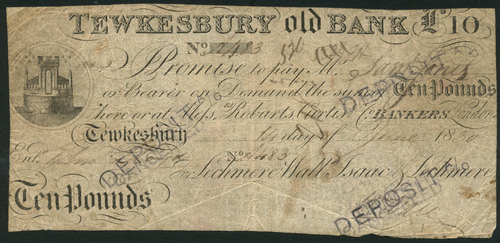 TEWKESBURY old BANK £10
No 2483
Promise to pay Mr
or Bearer on Demand the sum of Ten Pounds
Here or at Messrs Robarts Curtis & Co BANKERS London
Tewkesbury day of June 18
No 2483
Entd For Lechmere Wall Isaac & Lechmere
Ten Pounds
DEPOSIT
DEPOSIT
DEPOSIT